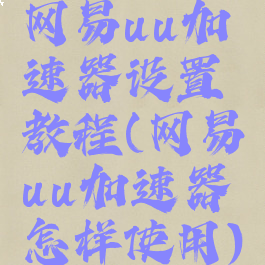 网易uu加
速器设置
教程(网易
uu加速器
怎样使用)